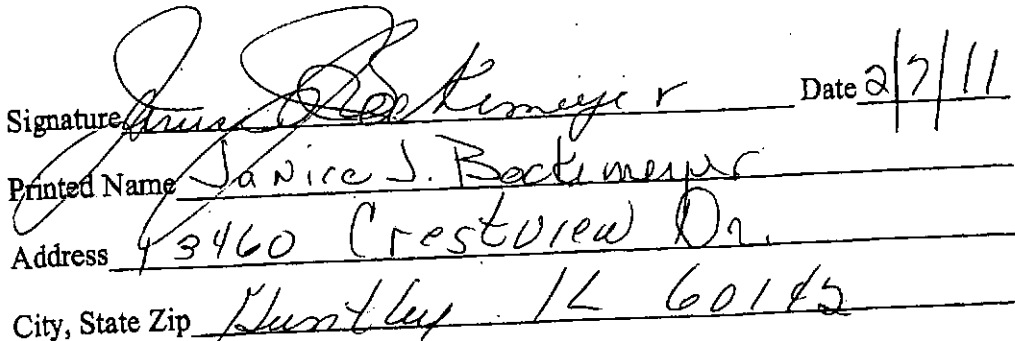 Signature Janice J Bockemeyer Date 2/7/11
Printed Name Janice J. Bockemeyer
Address 13460 Crestview Dr.
City, State Zip Huntley IL 60142